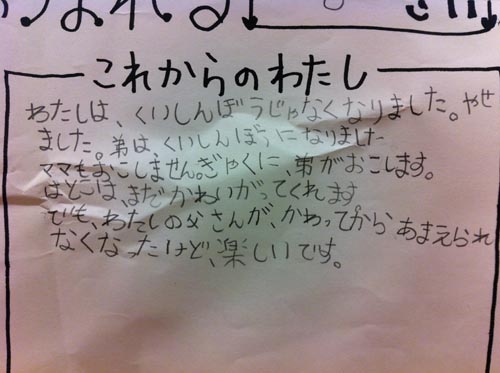 これからのわたし
わたしは、くいしんぼうじゃなくなりました。やせ
ました。弟は、くいしんぼうになりました
ママもおこしません。ぎゃくに、弟がおこします。
はとこは、まだかわいがってくれます
でも、わたしの父さんが、かわってから あまえられ
なくなったけど、楽しいです。